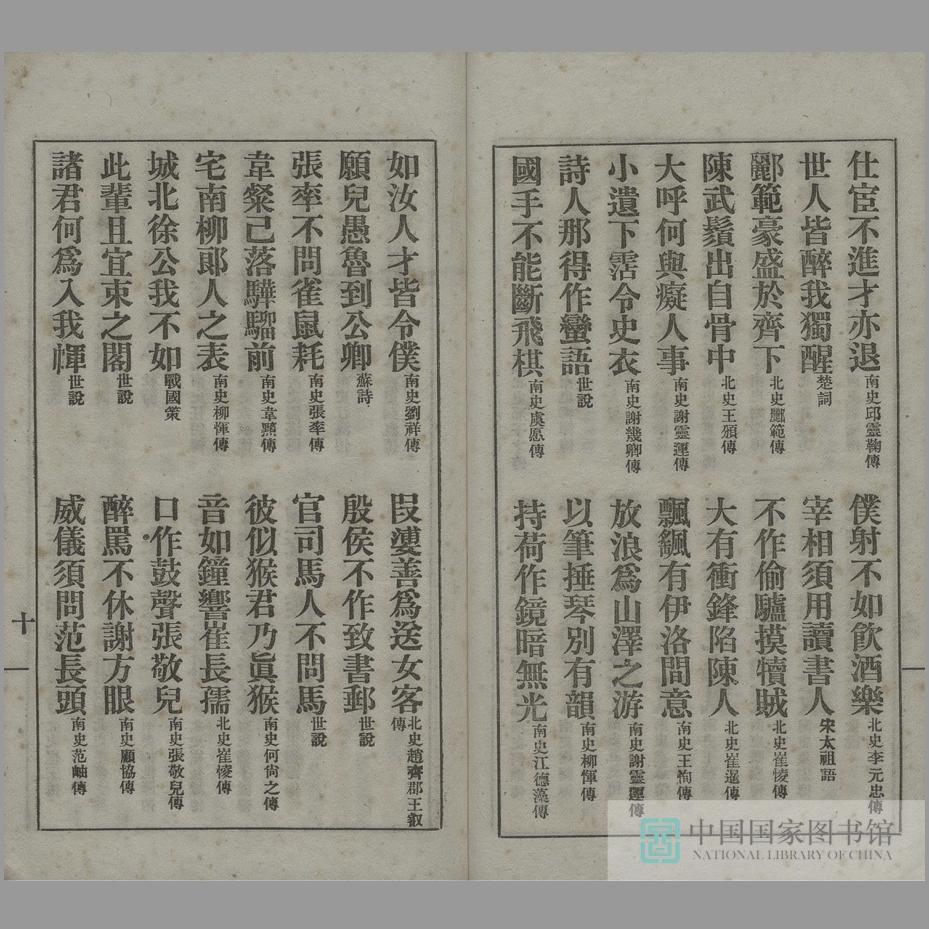 仕宦不進才亦退南史邱靈鞠傳　僕射不如飲酒樂北史李元忠傳
世人皆醉我獨醒楚詞　宰相須用讀書人宋太祖語
酈範豪盛於齊下北史酈範傳　不作偷驢摸犢賊北史崔㥄傳
陳武鬚出自骨中北史王頒傳　大有衝鋒陷陳人北史崔暹傳
大呼何與癡人事南史謝靈運傳　飄颻有伊洛間意南史王恂傳
小遺下霑令史衣南史謝幾卿傳　放浪爲山澤之游南史謝靈運傳
詩人那得作蠻語世說　以筆捶琴別有韻南史柳惲傳
國手不能斷飛棋南史虞愿傳　持荷作鏡暗無光南史江德藻傳
如汝人才皆令僕南史劉祥傳　段婆善爲送女客北史趙齊郡王叡傳
願兒愚魯到公卿蘇詩　殷侯不作致書郵世說
張率不問雀鼠耗南史張率傳　官司馬人不問馬世說
韋粲已落驊騮前南史韋黯傳　彼似猴君乃眞猴南史何尙之傳
宅南柳郞人之表南史柳惲傳　音如鐘響崔長孺北史崔㥄傳
城北徐公我不如戰國策　口作鼓聲張敬兒南史張敬兒傳
此輩且宜束之閣世說　醉罵不休謝方眼南史顧協傳
諸君何爲入我㡓世說　威儀須問范長頭南史范岫傳
十
中国国家图书馆
NATIONAL LIBRARY OF CHINA